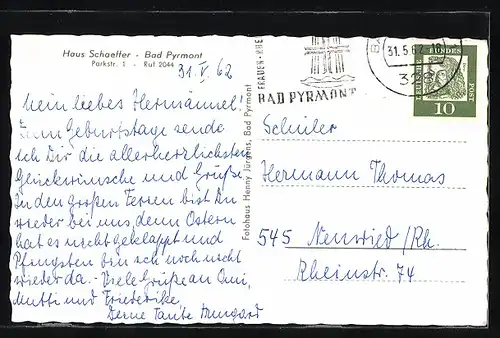 Haus Schaeffer - Bad Pyrmont
Parkstr. 1 - Ruf 2044
31. V. 62
Mein liebes Hermännel!
Zum Geburtstage sende
ich Dir die allerherzlichsten
Glückwünsche und Grüße.
In den großen Ferien bist Du
wieder bei uns, denn Ostern
hat es nicht geklappt und
Pfingsten bin ich noch nicht
wieder da. - Viele Grüße an Omi,
Mutti und Friederike,
Deine Tante Irmgard
Fotohaus Henny Jürgens, Bad Pyrmont
FRAUEN
BAD PYRMONT
31.5.62
328
DEUTSCHE
BUNDES
POST
10
Schüler
Hermann Thomas
545 Neuwied/Rh.
Rheinstr. 74